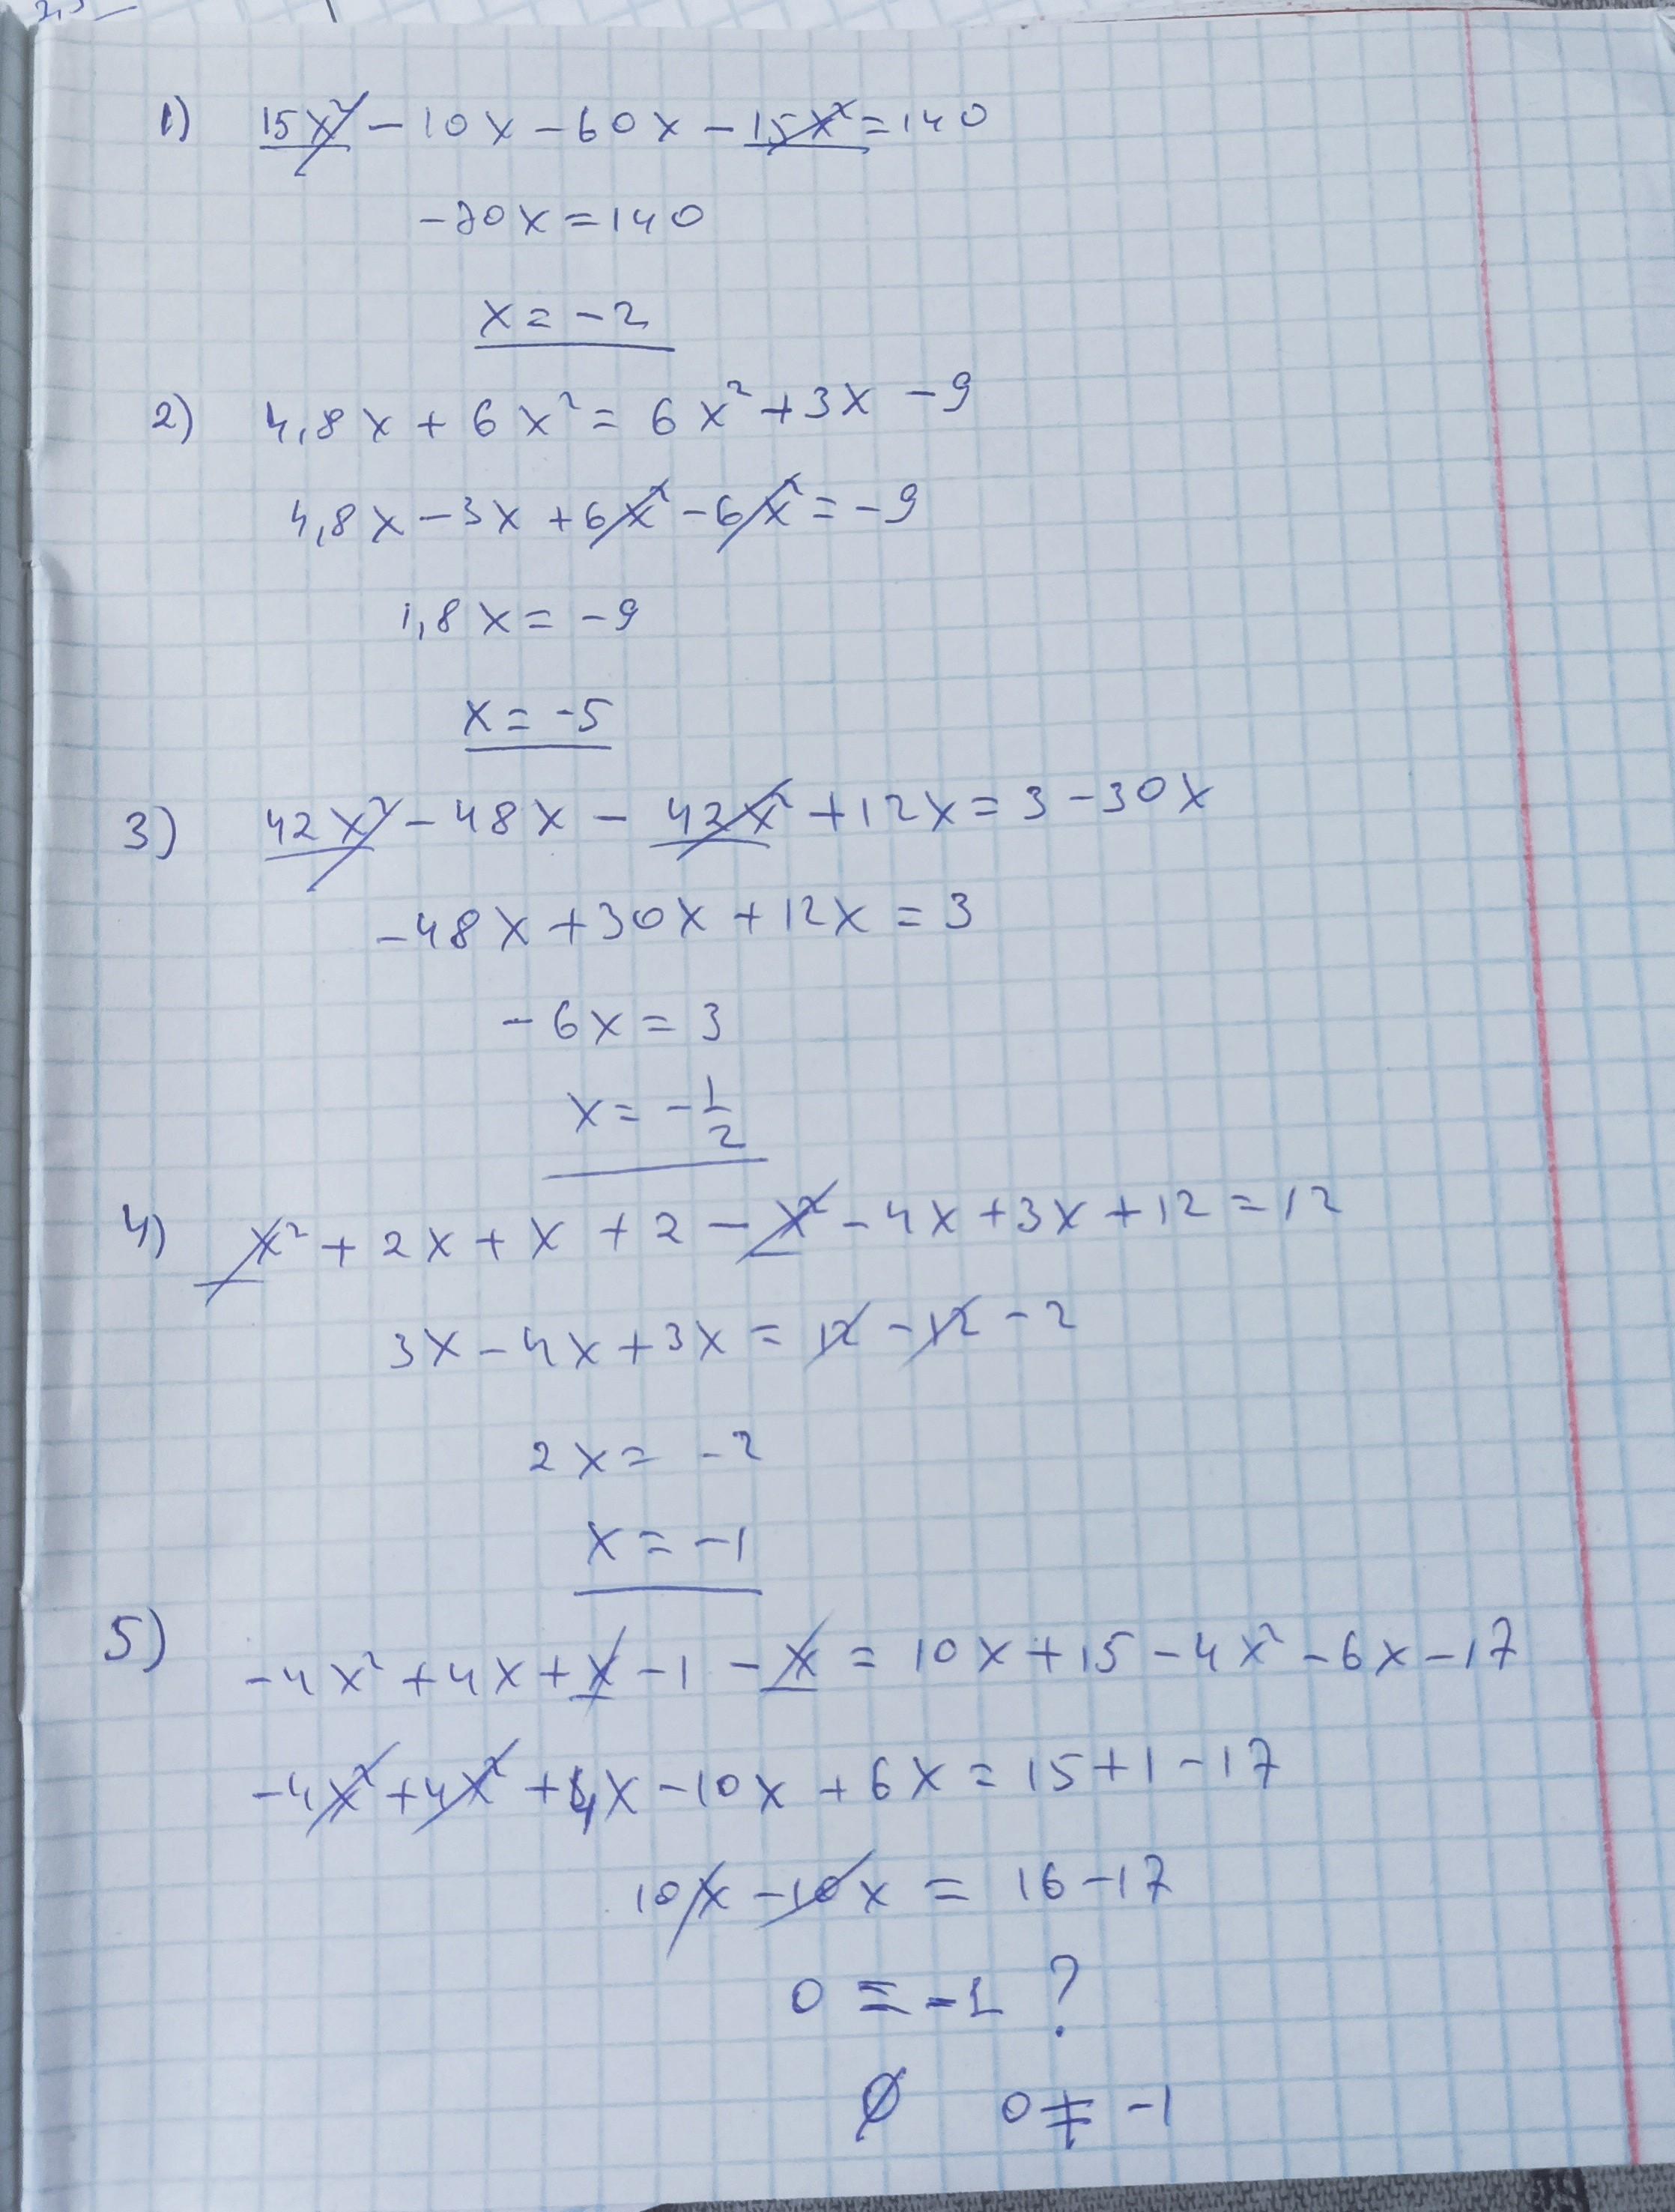 1) 15x² - 10x - 60x - 15x² = 140
-70x = 140
x = -2
2) 4,8x + 6x² = 6x² + 3x - 9
4,8x - 3x + 6x² - 6x² = -9
1,8x = -9
x = -5
3) 42x² - 48x - 42x² + 12x = 3 - 30x
-48x + 30x + 12x = 3
-6x = 3
x = -1/2
4) x² + 2x + x + 2 - x² - 4x + 3x + 12 = 12
3x - 4x + 3x = 12 - 12 - 2
2x = -2
x = -1
5) -4x² + 4x + x - 1 - x = 10x + 15 - 4x² - 6x - 17
-4x² + 4x² + 4x - 10x + 6x = 15 + 1 - 17
10x - 10x = 16 - 17
0 = -1 ?
∅ 0 ≠ -1